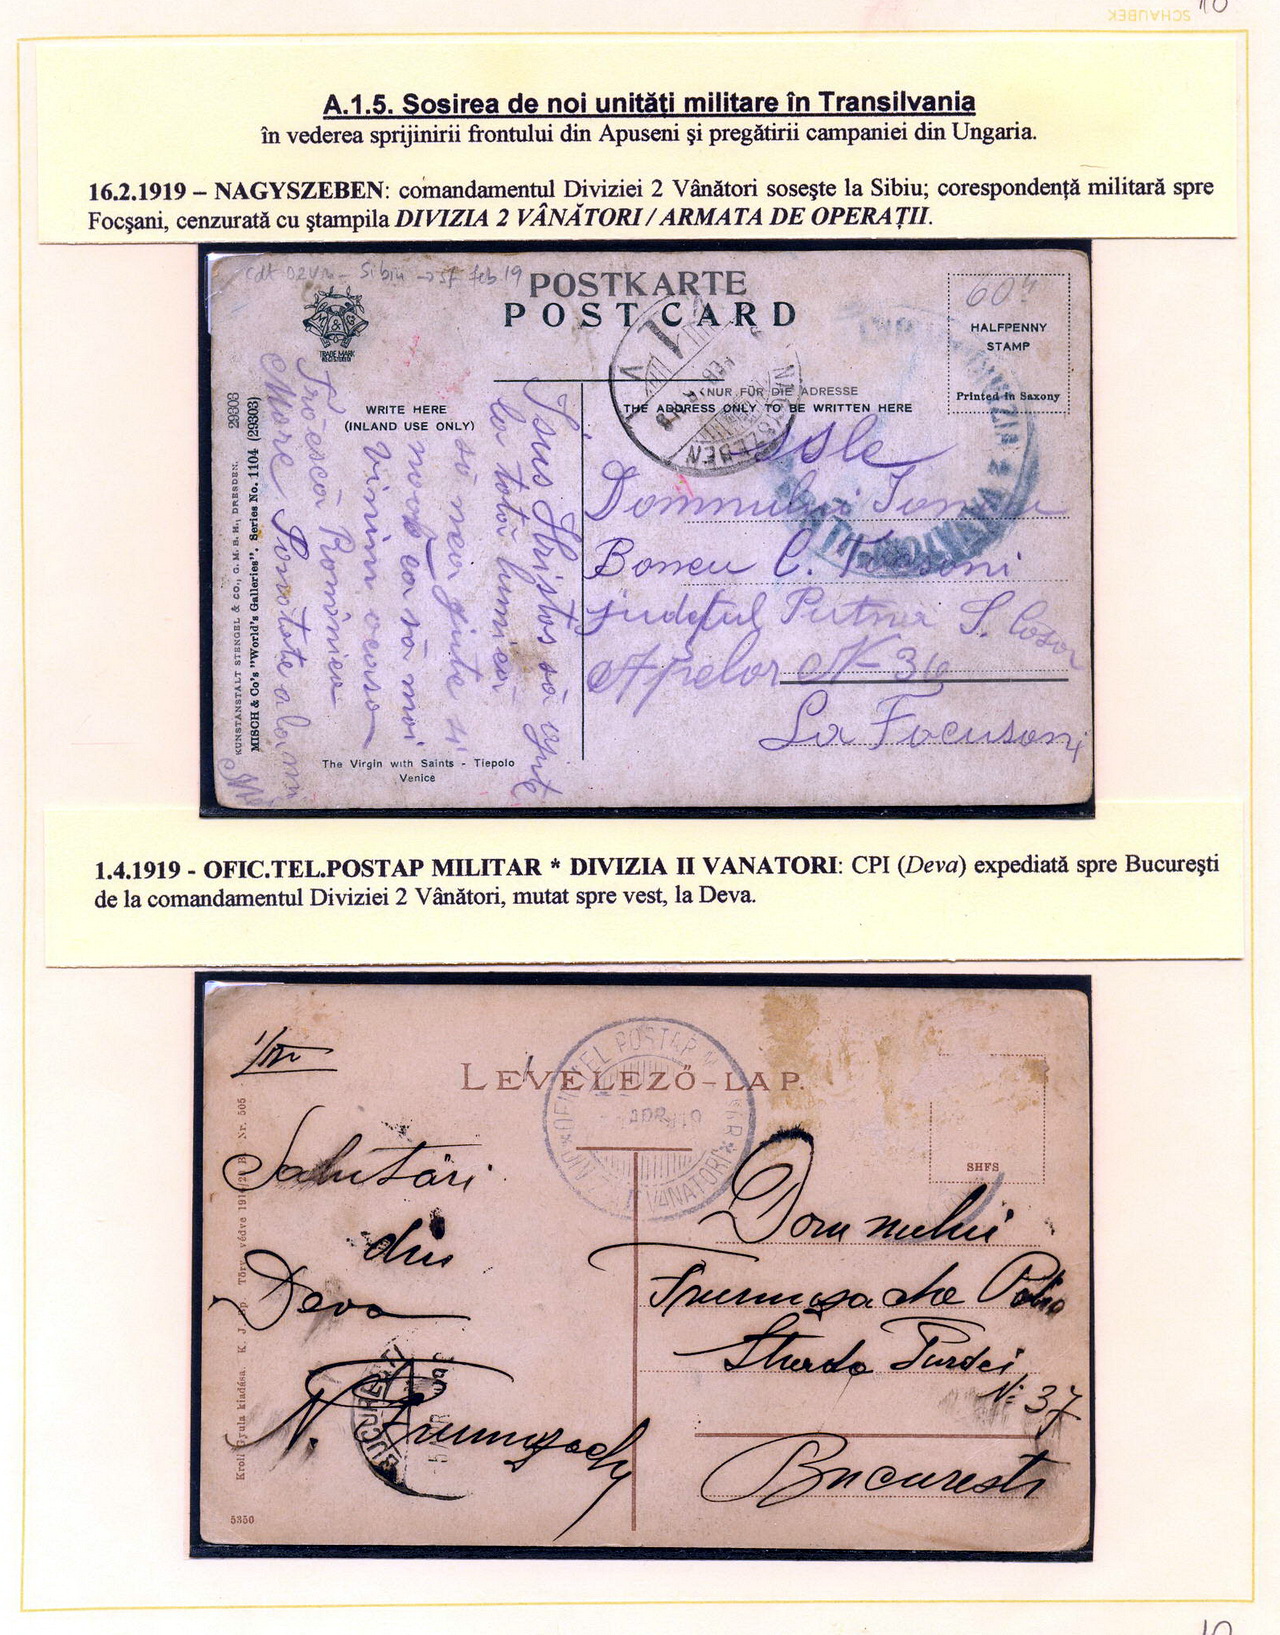 SCHAUBEK
10
A.1.5. Sosirea de noi unităţi militare în Transilvania
în vederea sprijinirii frontului din Apuseni şi pregătirii campaniei din Ungaria.
16.2.1919 – NAGYSZEBEN: comandamentul Diviziei 2 Vânători soseşte la Sibiu; corespondenţă militară spre
Focşani, cenzurată cu ştampila DIVIZIA 2 VÂNĂTORI / ARMATA DE OPERAŢII.
Sibiu → sf feb 19
POSTKARTE
POST CARD
60
HALFPENNY
STAMP
Printed in Saxony
TRADE MARK
REGISTERED
NUR FÜR DIE ADRESSE
THE ADDRESS ONLY TO BE WRITTEN HERE
WRITE HERE
(INLAND USE ONLY)
NAGYSZEBEN
FEB
KUNSTANSTALT STENGEL & CO., G.M.B.H., DRESDEN. 29303
MISCH & Co's "World's Galleries". Series No. 1104 (29303)
Isus Hristos să ajute
la totă lumica
să neajute și
nouă ca să mai
Trăescă România
Mare
Domnului
Boncu C.
județul Putna S.
Apelor N- 36
La Focusoni
The Virgin with Saints - Tiepolo
Venice
1.4.1919 - OFIC.TEL.POSTAP MILITAR * DIVIZIA II VANATORI: CPI (Deva) expediată spre Bucureşti
de la comandamentul Diviziei 2 Vânători, mutat spre vest, la Deva.
1/IV
LEVELEZŐ-LAP.
OFIC TEL POSTAP
VANATORI
SHFS
Salutări
din
Deva
N. Frumușachy
BUCUREȘTI
Domnului
Frumușache
Sturdo Turdei
N: 37
Bucuresti
Kroll Gyula kiadása. K. J. Bp. Törv. védve Nr. 505
5350
10